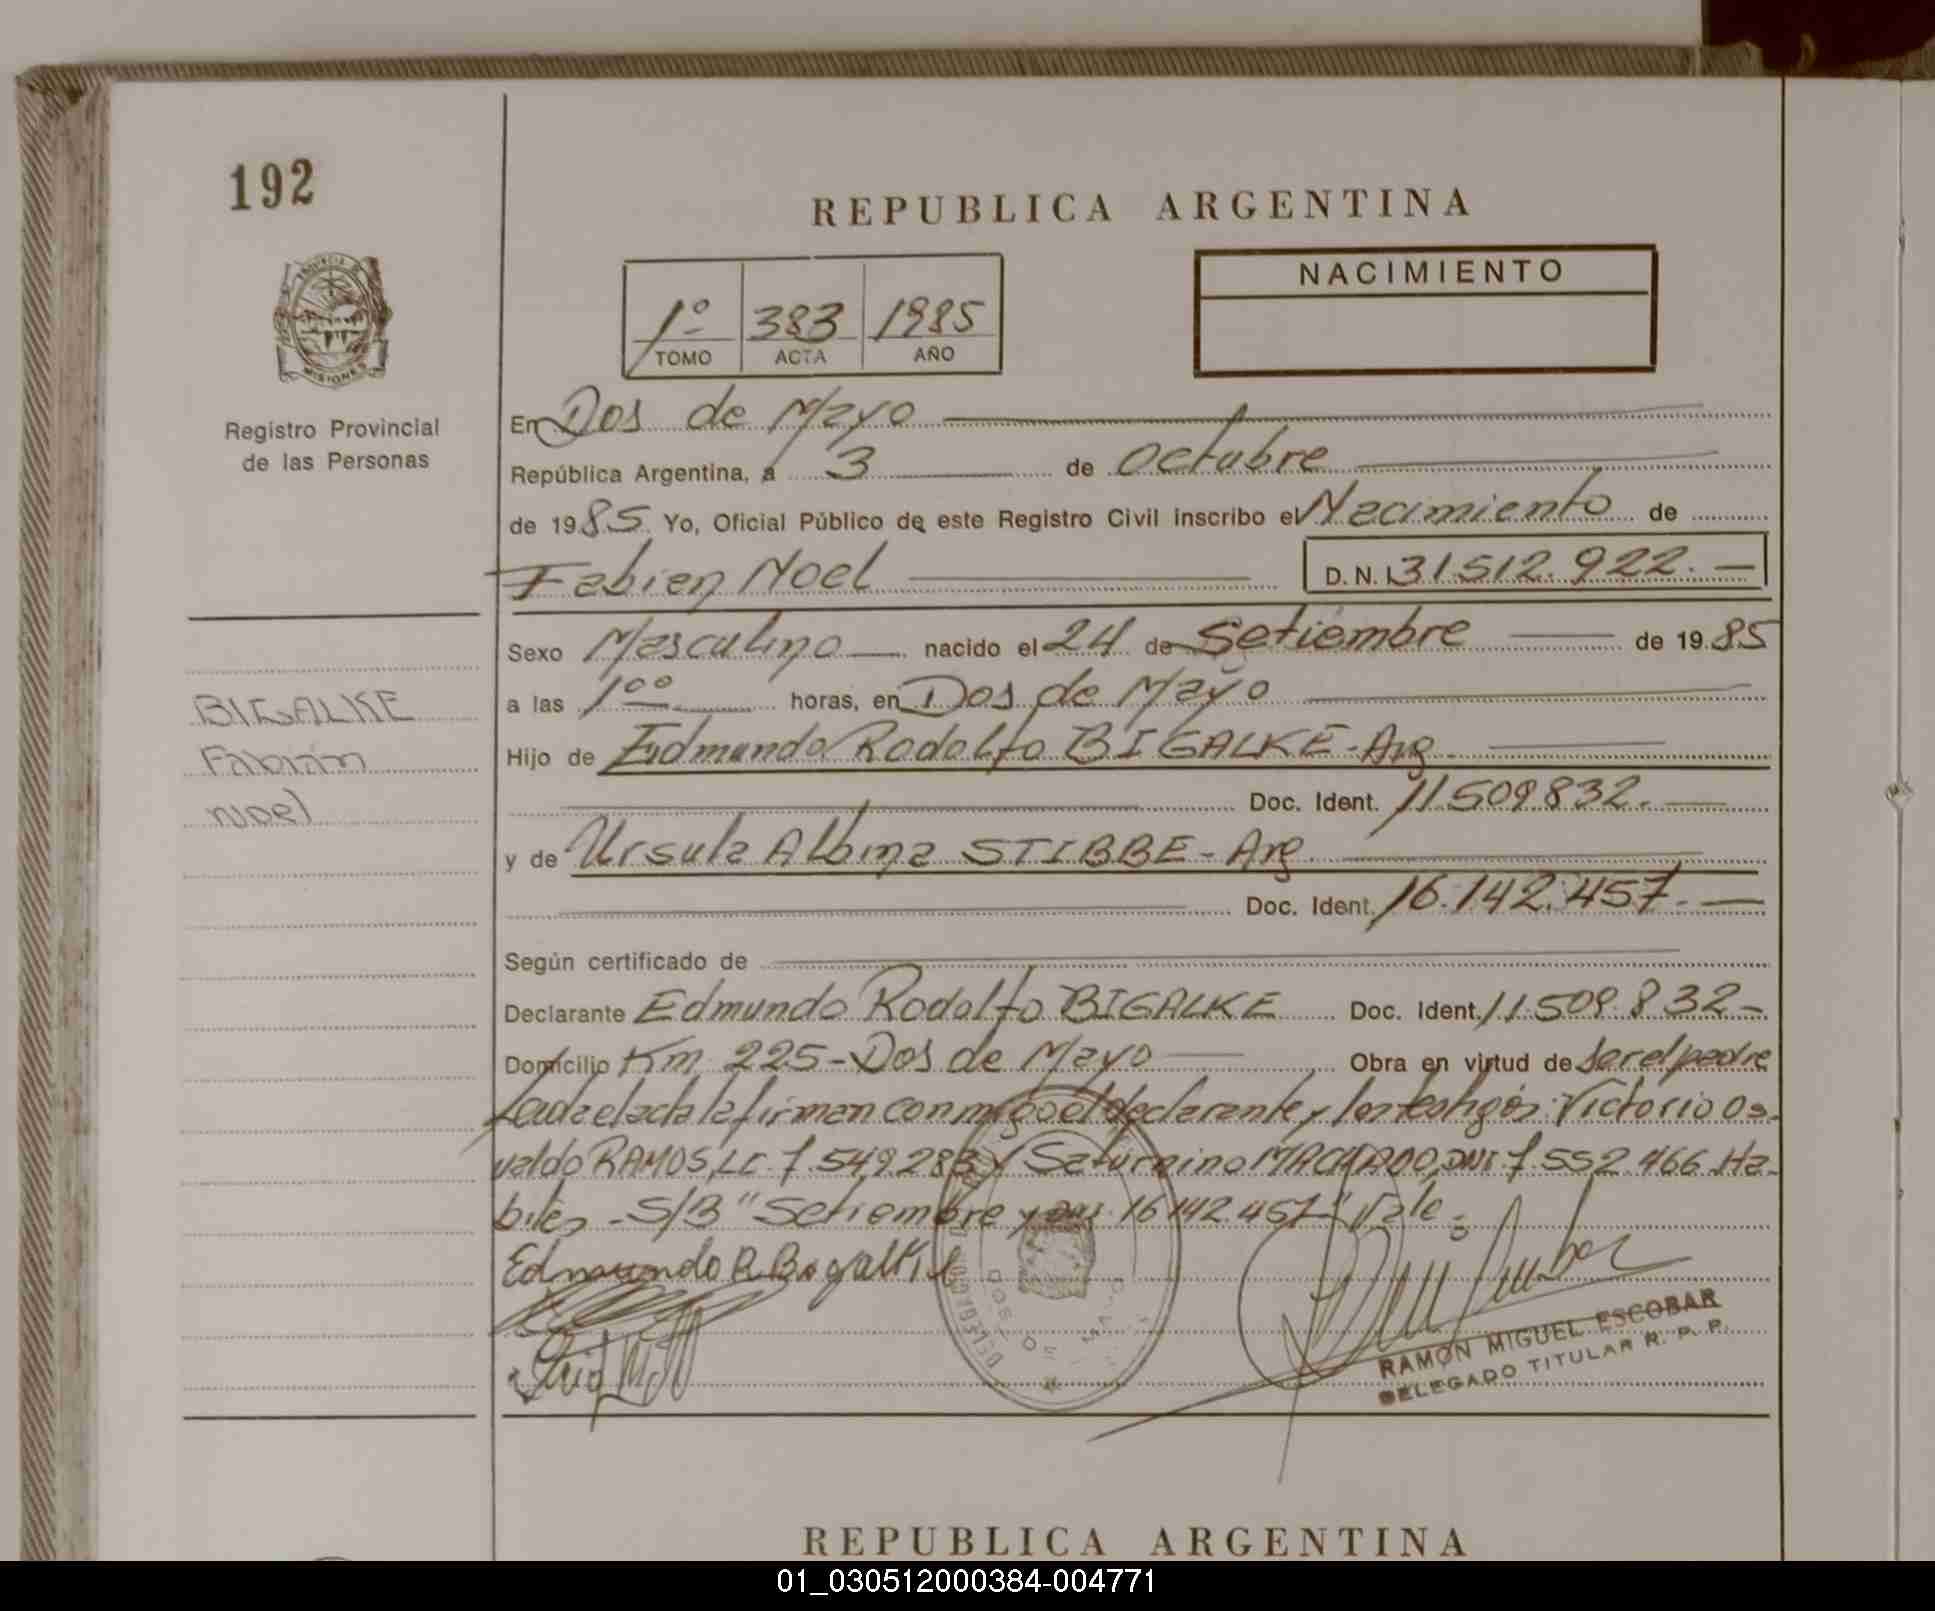 192
REPUBLICA ARGENTINA
NACIMIENTO
1º 383 1985
TOMO ACTA AÑO
PROVINCIA DE MISIONES
Registro Provincial
de las Personas
En Dos de Mayo
República Argentina, a 3 de Octubre
de 1985 Yo, Oficial Público de este Registro Civil inscribo el Nacimiento de
Fabien Noel D. N. I. 31.512.922.—
Sexo Masculino nacido el 24 de Setiembre de 1985
a las 1ºº horas, en Dos de Mayo
BIGALKE
Fabian
noel
Hijo de Edmundo Rodolfo BIGALKE-Arg.
Doc. Ident. 11.509832.—
y de Ursula Albina STIBBE-Arg.
Doc. Ident. 16.142.457.—
Según certificado de
Declarante Edmundo Rodolfo BIGALKE Doc. Ident. 11.509.832-
Domicilio Km 225-Dos de Mayo Obra en virtud de ser el padre
Leida el acta la firman conmigo el declarante y los testigos: Victorio Os-
valdo RAMOS, LE 7.549.283 y Saturnino MACHADO, DNI 7.552.466 Ha-
biles -S/B "Setiembre y DNI 16.142.457" Vale.
Edmundo R Bigalke
DOS DE MAYO
RAMON MIGUEL ESCOBAR
DELEGADO TITULAR R. P. P.
REPUBLICA ARGENTINA
01_030512000384-004771